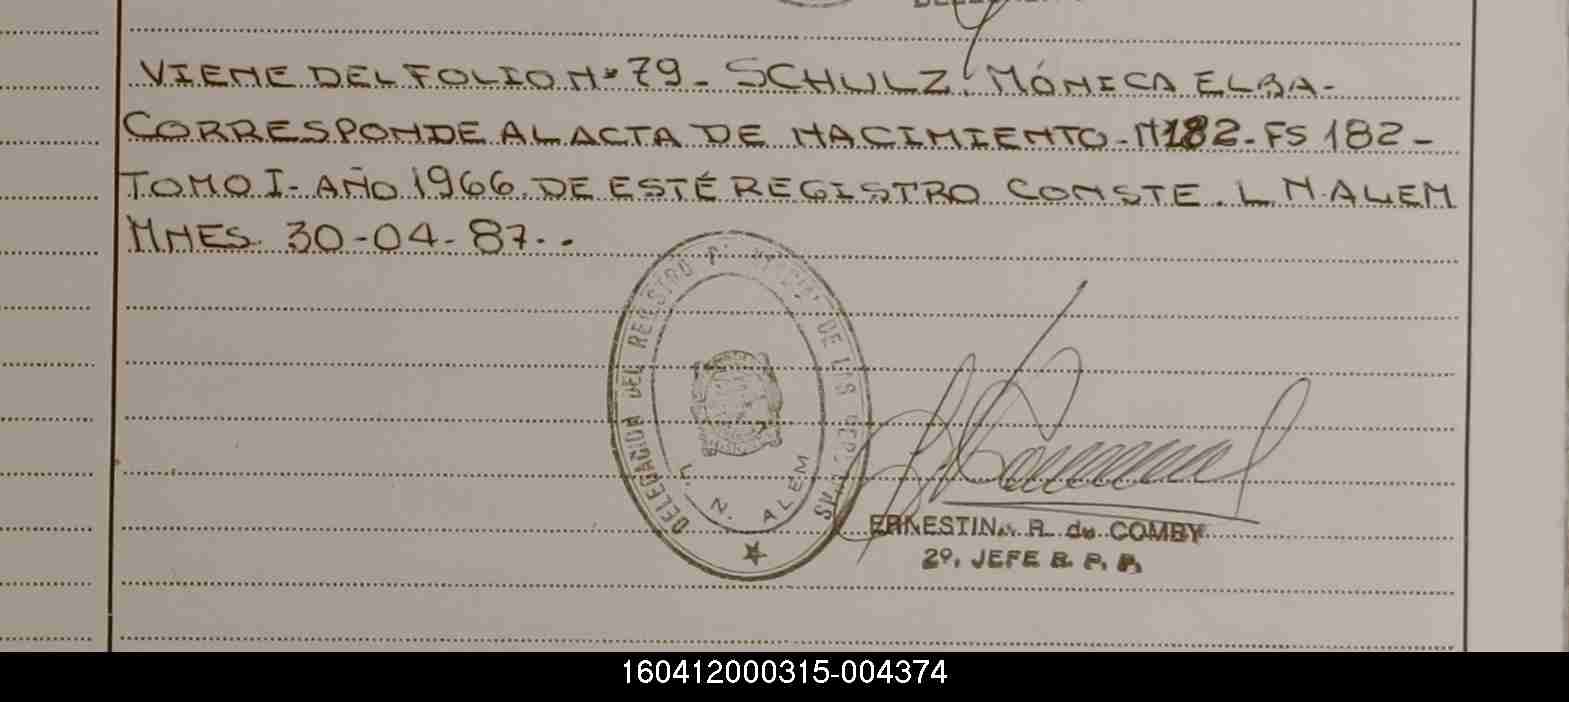 VIENE DEL FOLIO Nº 79- SCHULZ, MÓNICA ELBA-
CORRESPONDE AL ACTA DE NACIMIENTO-N182-FS 182-
TOMO I- AÑO 1966 DE ESTÉ REGISTRO CONSTE. L N. ALEM
MNES. 30-04-87-.
DELEGACION DEL REGISTRO DE LAS
L. N. ALEM
ERNESTINA R. de COMBY
2º. JEFE R. P. P.
160412000315-004374